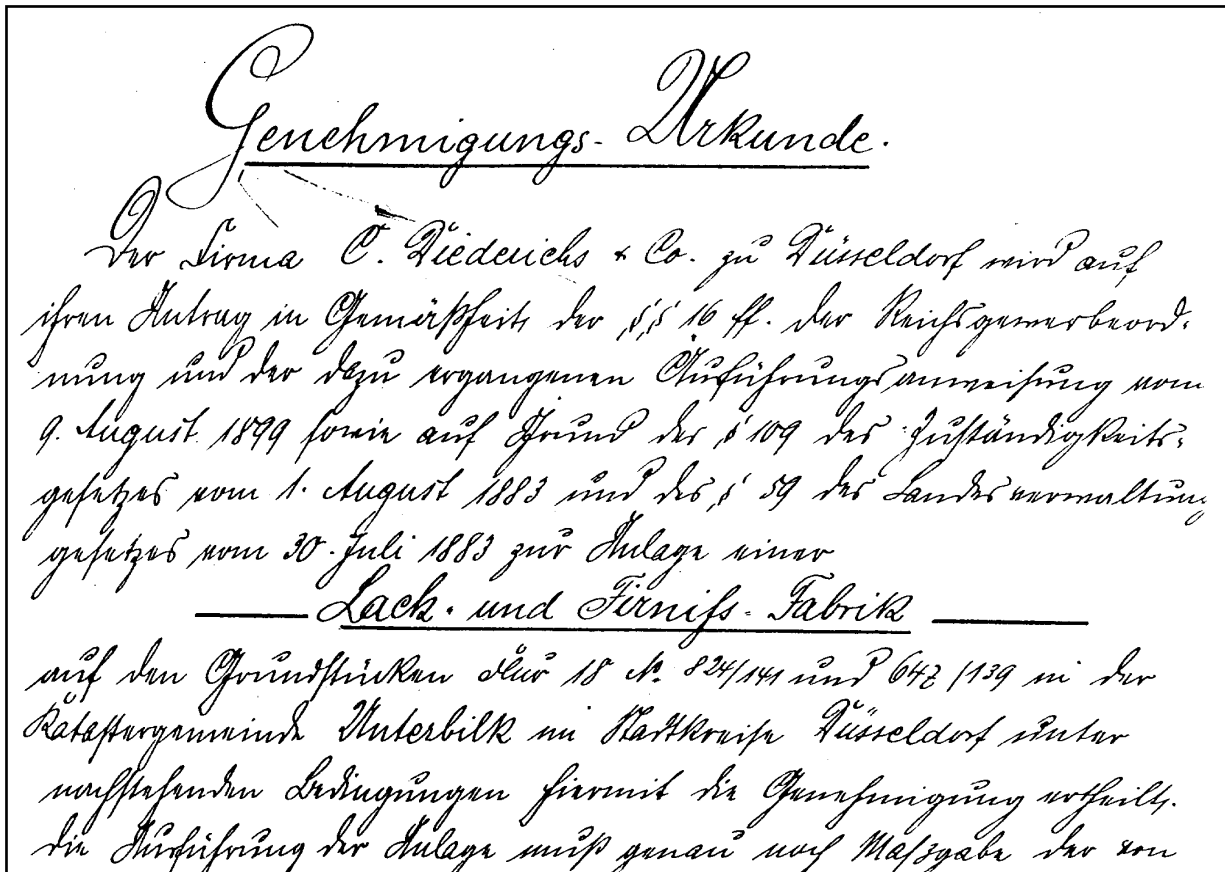 Genehmigungs-Urkunde.
Der Firma C. Diederichs & Co. zu Düsseldorf wird auf
ihren Antrag in Gemäßheit der §§ 16 ff. der Reichsgewerbeord-
nung und der dazu ergangenen Ausführungsanweisung vom
9. August 1899 sowie auf Grund des § 109 des Zuständigkeits-
gesetzes vom 1. August 1883 und des § 59 des Landesverwaltung
gesetzes vom 30. Juli 1883 zur Anlage einer
Lack- und Firniß-Fabrik
auf den Grundstücken Flur 18 No. 824/141 und /139 in der
Katastergemeinde Unterbilk im Stadtkreise Düsseldorf unter
nachstehenden Bedingungen hiermit die Genehmigung ertheilt.
Die Ausführung der Anlage muß genau nach Maßgabe der von